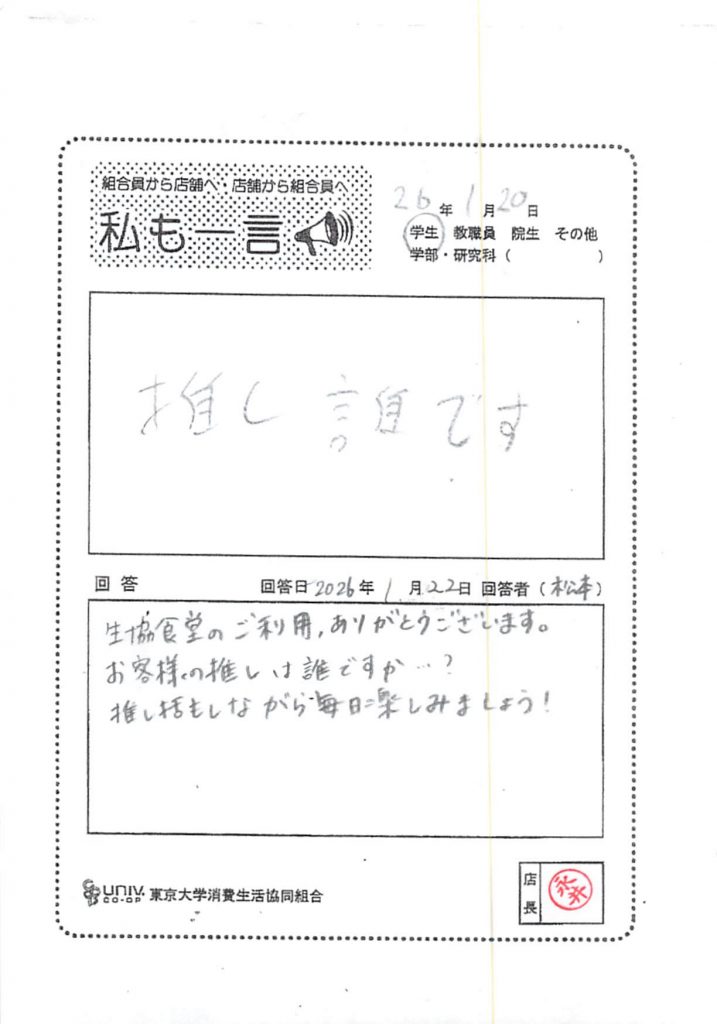 組合員から店舗へ・店舗から組合員へ
私も一言
26年1月20日
学生 教職員 院生 その他
学部・研究科( )
推し誰です
回答 回答日2026年1月22日 回答者(松本)
生協食堂のご利用,ありがとうございます。
お客様の推しは誰ですか…?
推し活もしながら毎日楽しみましょう!
UNIV. CO-OP 東京大学消費生活協同組合
店長